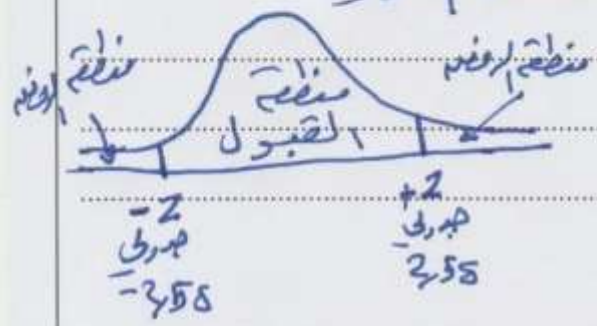 منطقة الرفض
منطقة
القبول
منطقة الرفض
-Z
جدولى
-2,58
+Z
جدولى
2,58